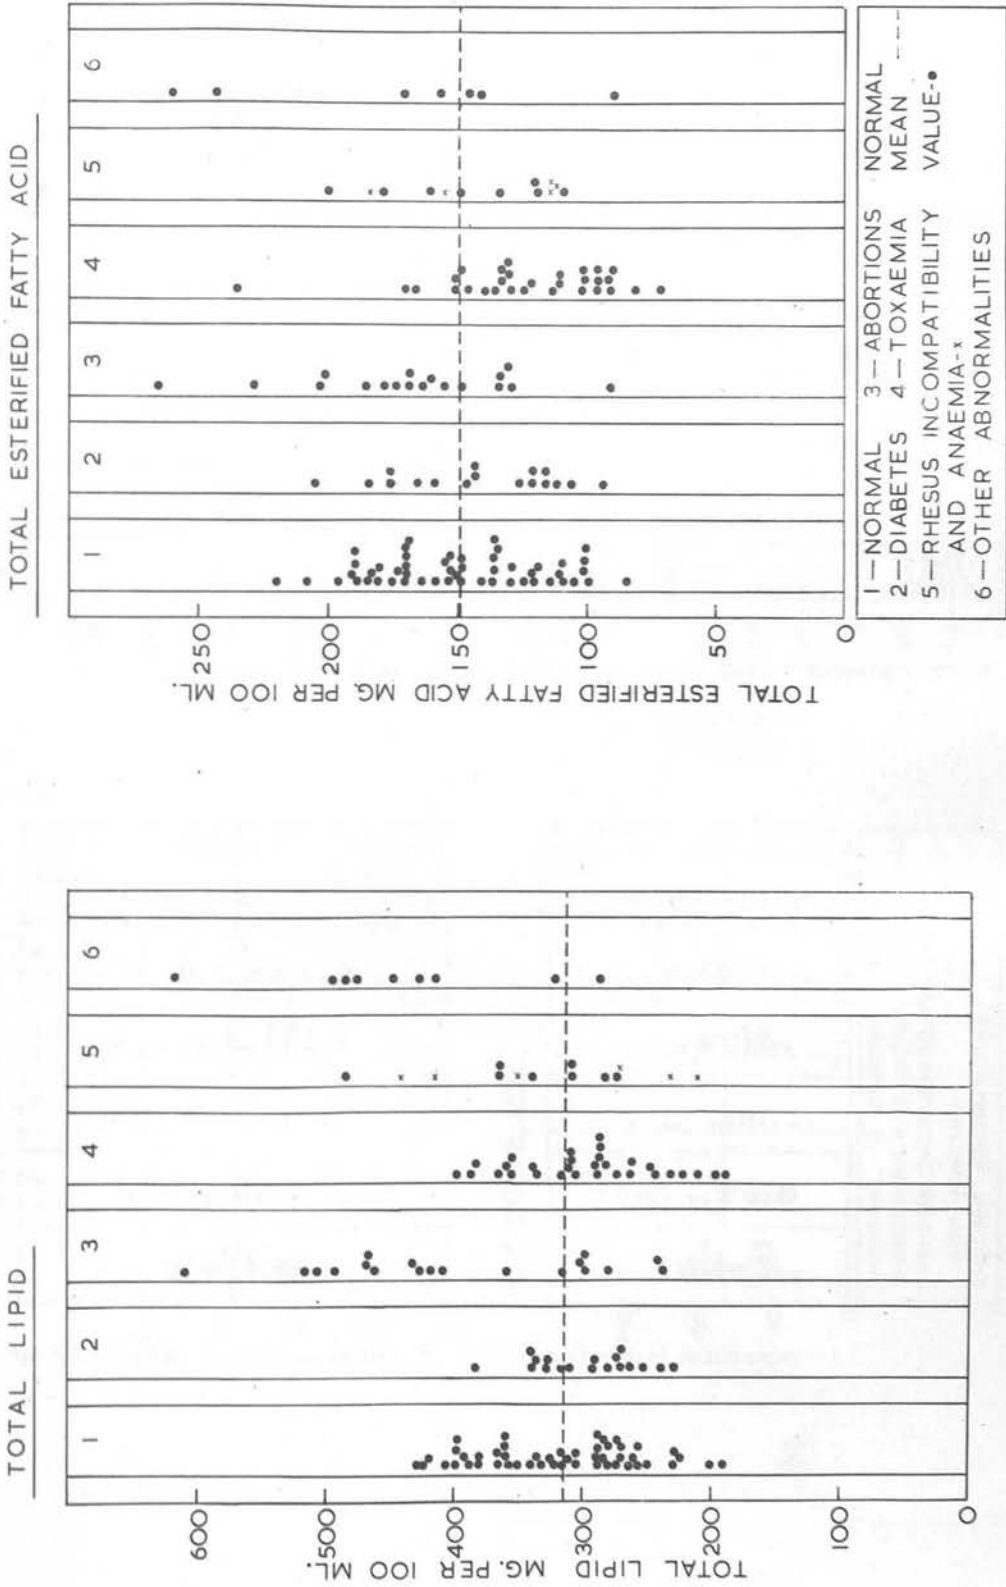 TOTAL LIPID
1 2 3 4 5 6
600
500
400
300
200
100
0
TOTAL LIPID MG. PER 100 ML.
TOTAL ESTERIFIED FATTY ACID
1 2 3 4 5 6
250
200
150
100
50
0
TOTAL ESTERIFIED FATTY ACID MG. PER 100 ML.
1 — NORMAL 3 — ABORTIONS NORMAL
2 — DIABETES 4 — TOXAEMIA MEAN ---
5 — RHESUS INCOMPATIBILITY VALUE-●
AND ANAEMIA-x
6 — OTHER ABNORMALITIES